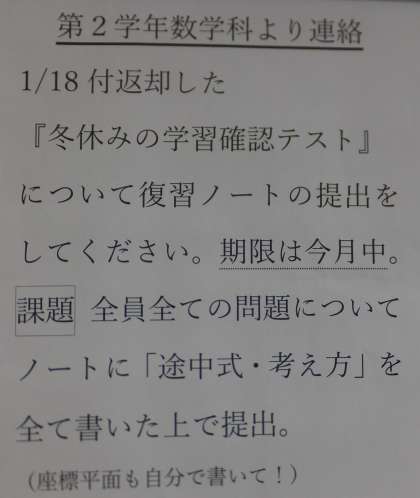 第２学年数学科より連絡
1/18 付返却した
『冬休みの学習確認テスト』
について復習ノートの提出を
してください。期限は今月中。
課題 全員全ての問題について
ノートに「途中式・考え方」を
全て書いた上で提出。
（座標平面も自分で書いて！）